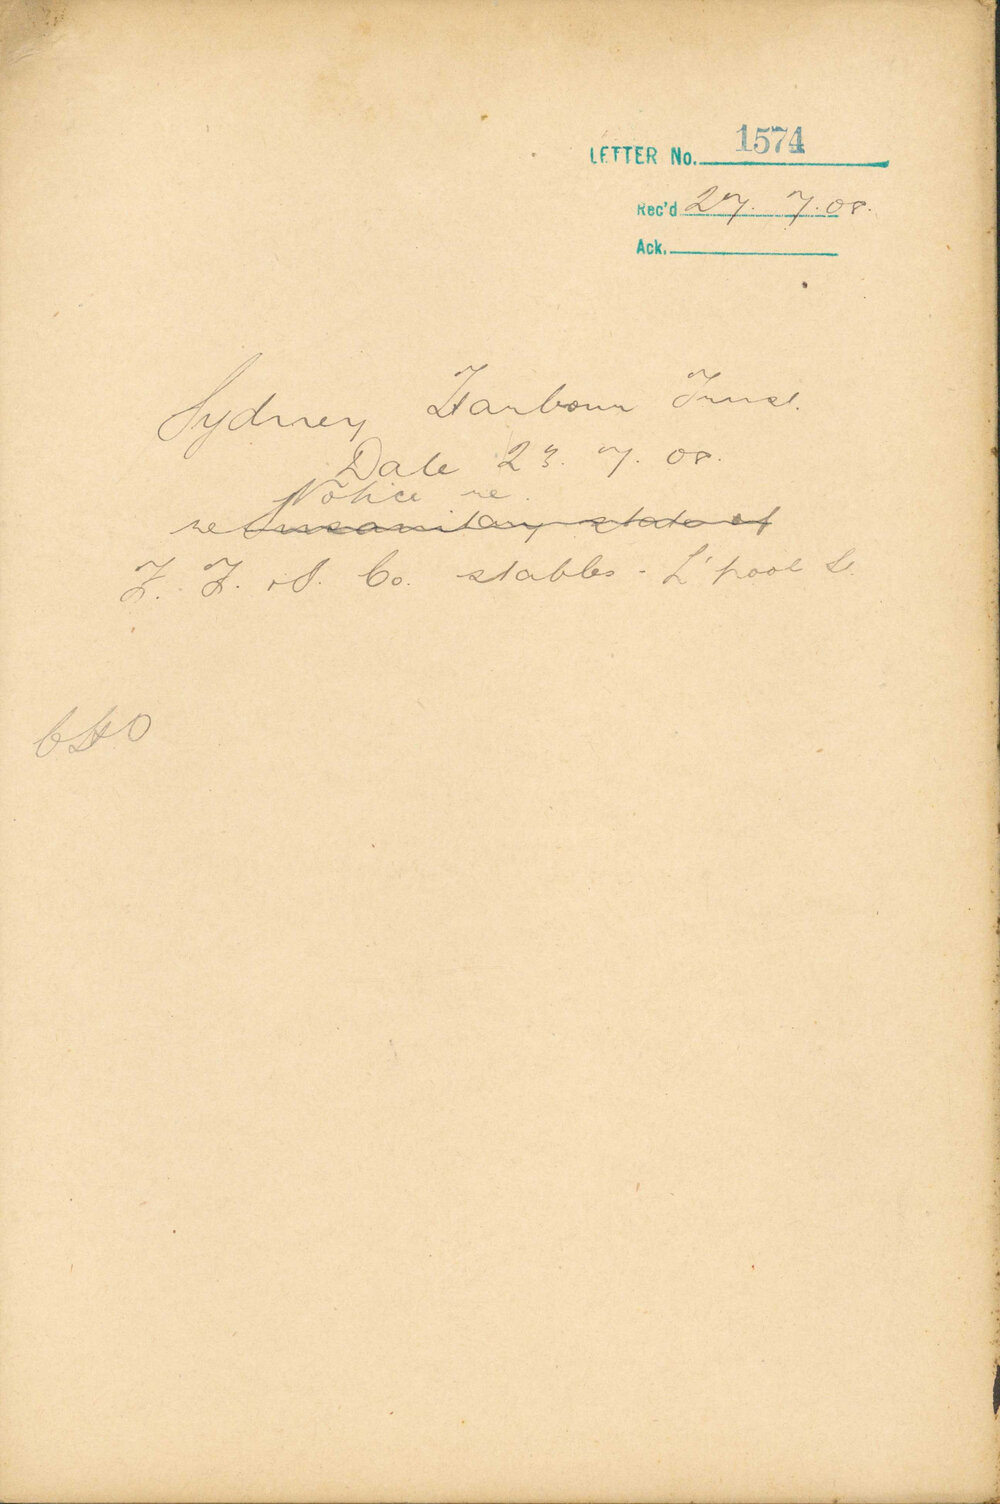 LETTER No. 1574
Rec'd 27. 7. 08.
Ack.
Sydney Harbour Trust.
Date 23. 7. 08.
Notice re.
re Insanitary state of
F. F. & I. Co. stables - L'pool St.
CHO